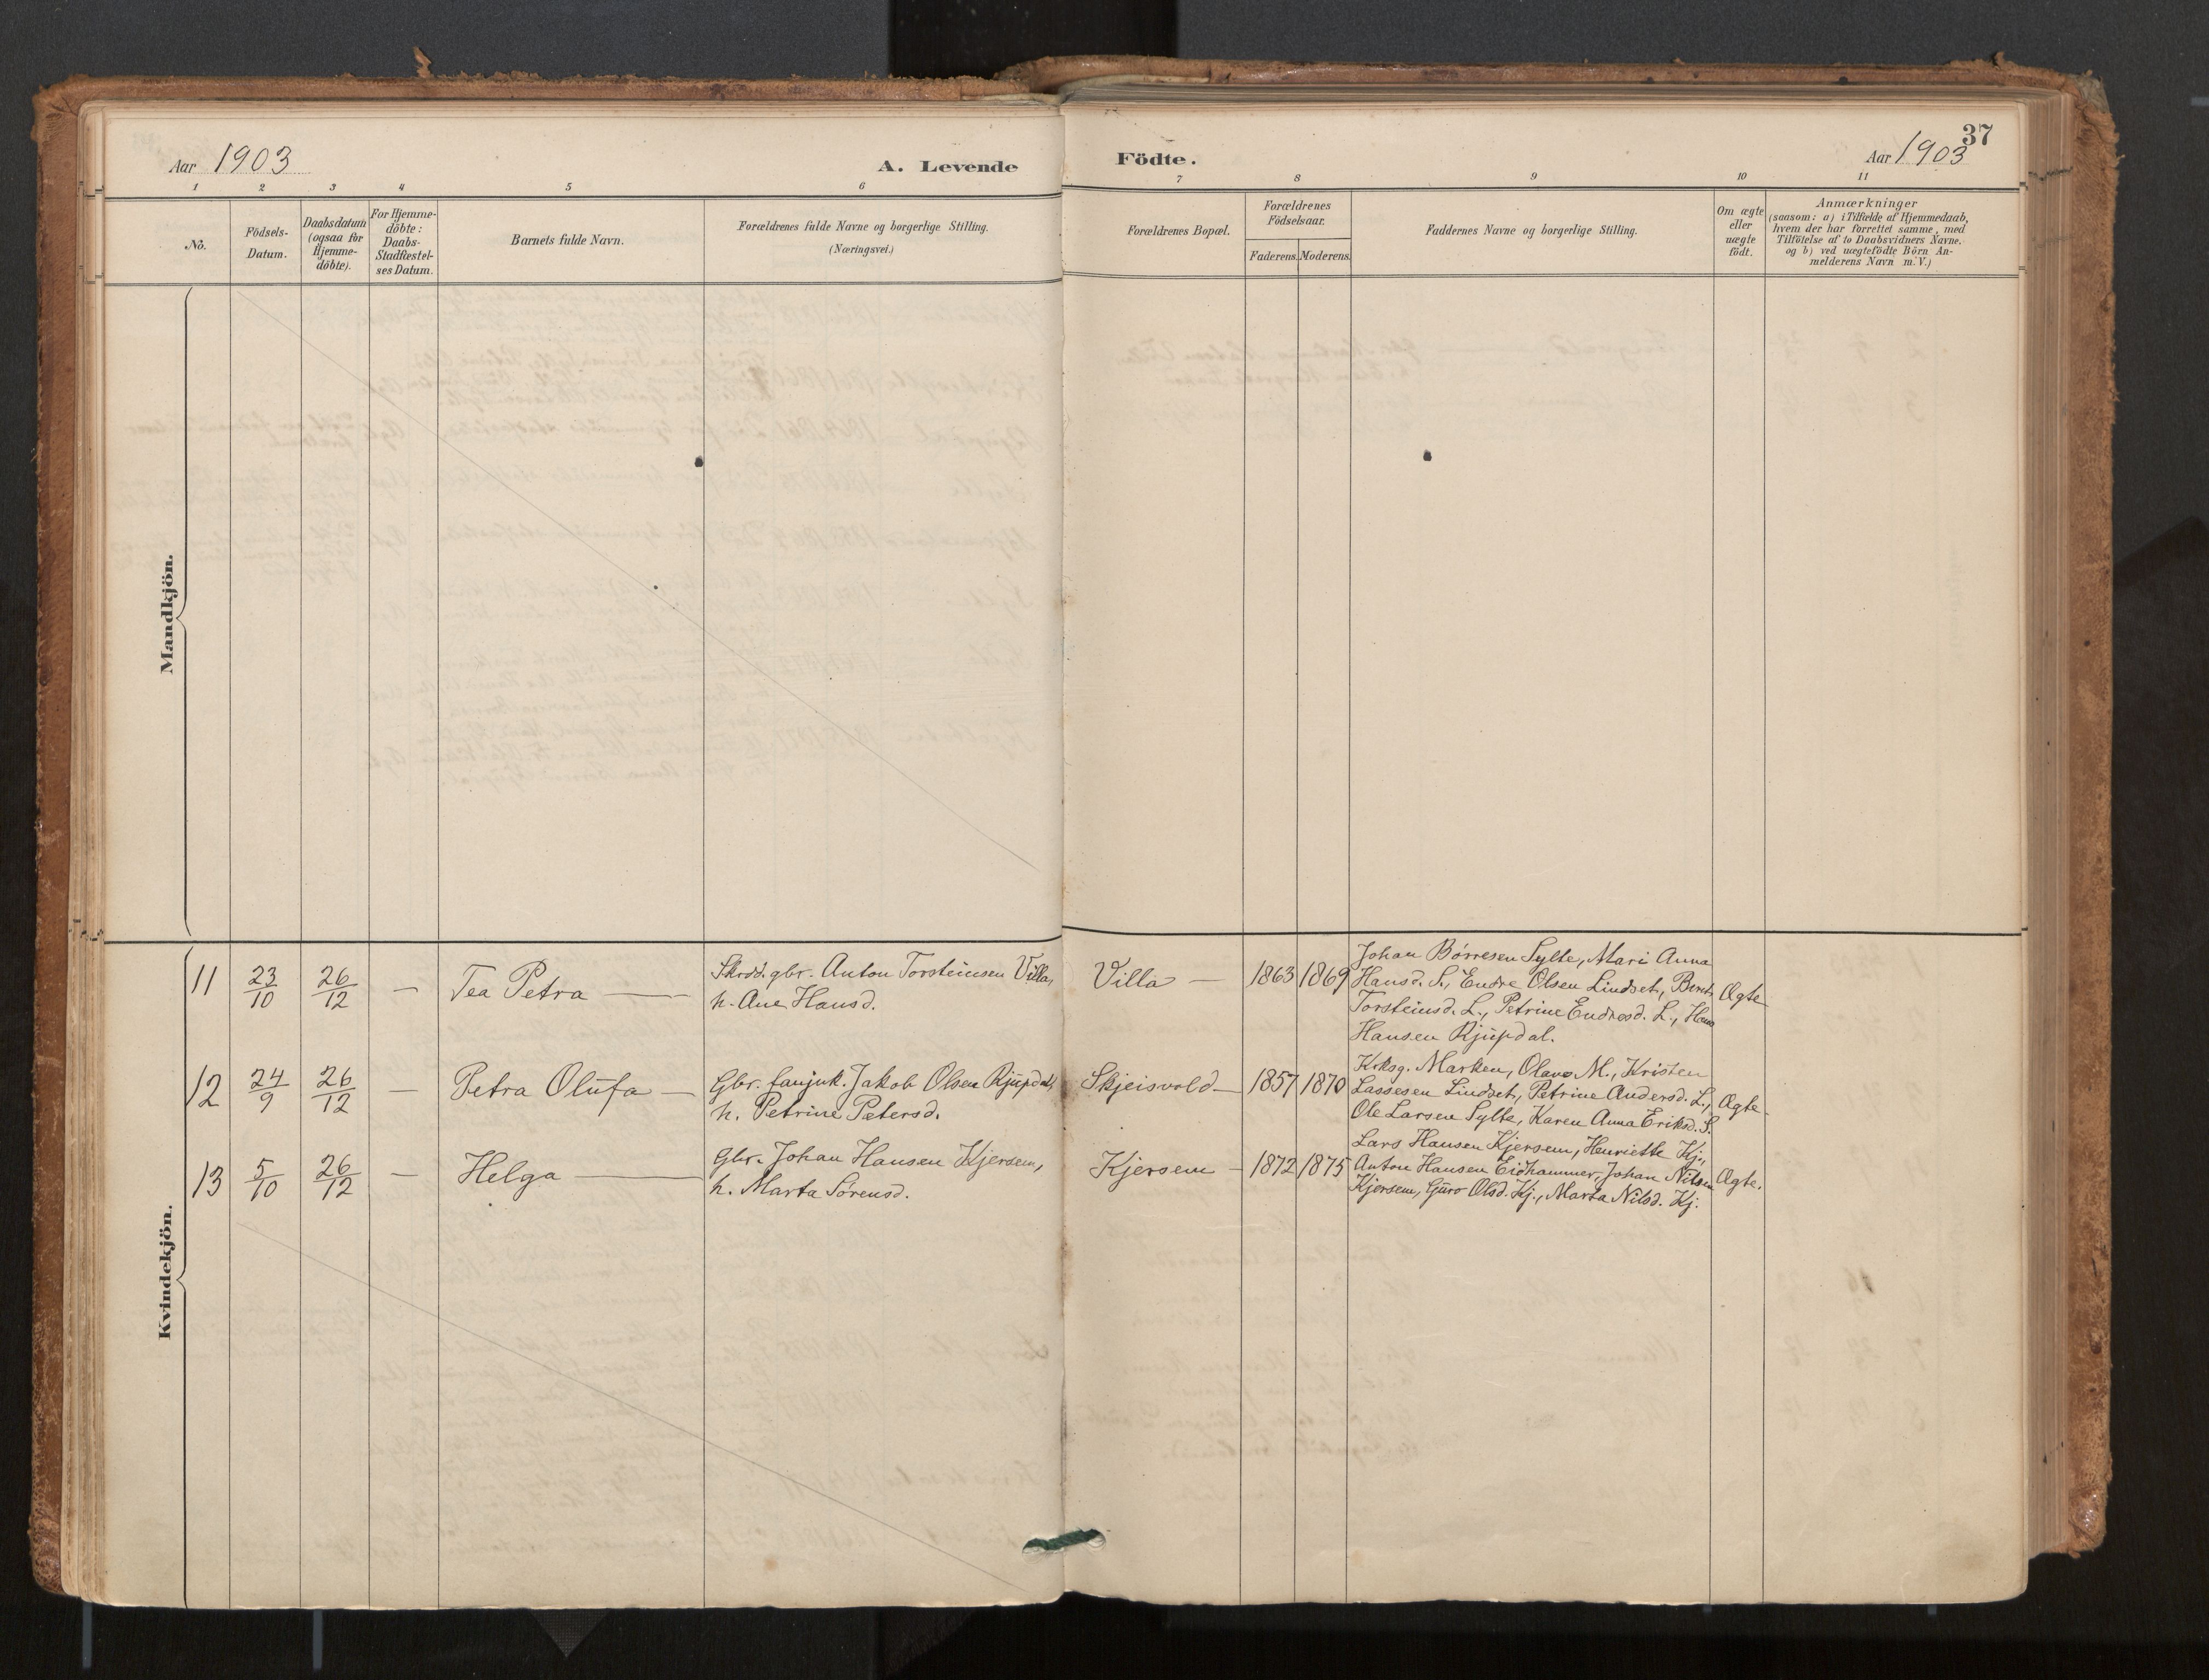 37
Aar 1903
A. Levende
Födte.
Aar 1903
1 2 3 4 5 6 7 8 9 10 11
No.
Födsels-
Datum.
Daabsdatum
(ogsaa for
Hjemme-
döbte).
For Hjemme-
döbte:
Daabs-
Stadfæstel-
ses Datum.
Barnets fulde Navn.
Forældrenes fulde Navne og borgerlige Stilling.
(Næringsvei.)
Forældrenes Bopæl.
Forældrenes
Födselsaar.
Faderens. Moderens.
Faddernes Navne og borgerlige Stilling.
Om ægte
eller
uægte
födt.
Anmærkninger
(saasom: a) i Tilfælde af Hjemmedaab,
hvem der har forrettet samme, med
Tilföielse af to Daabsvidners Navne.
og b) ved uægtefödte Börn An-
melderens Navn m. V.)
Mandkjön.
Kvindekjön.
11 23/10 26/12 — Tea Petra —
Skrdd. gbr. Anton Torsteinsen Villa,
h. Ane Hansd.
Villa — 1863 1869
Johan Børresen Sylte, Mari Anna
Hansd. S., Endre Olsen Lindset, Berit
Torsteinsd. L., Petrine Endresd. L., Hans
Hansen Rjupdal.
Ægte
12 24/9 26/12 — Petra Olufa —
Gbr. fanjuk. Jakob Olsen Rjupdal,
h. Petrine Petersd.
Skjeisvold — 1857 1870
Kirksg. Marken, Olava M., Kristen
Lassesen Lindset, Petrine Andersd. L.,
Ole Larsen Sylte, Karen Anna Eriksd. S.
Ægte
13 5/10 26/12 — Helga —
Gbr. Johan Hansen Kjersem,
h. Marta Sørensd.
Kjersem — 1872 1875
Lars Hansen Kjersem, Henriette Kj.,
Anton Hansen Eidhammer, Johan Nilsen
Kjersem, Guro Olsd. Kj., Marta Nilsd. Kj.
Ægte.